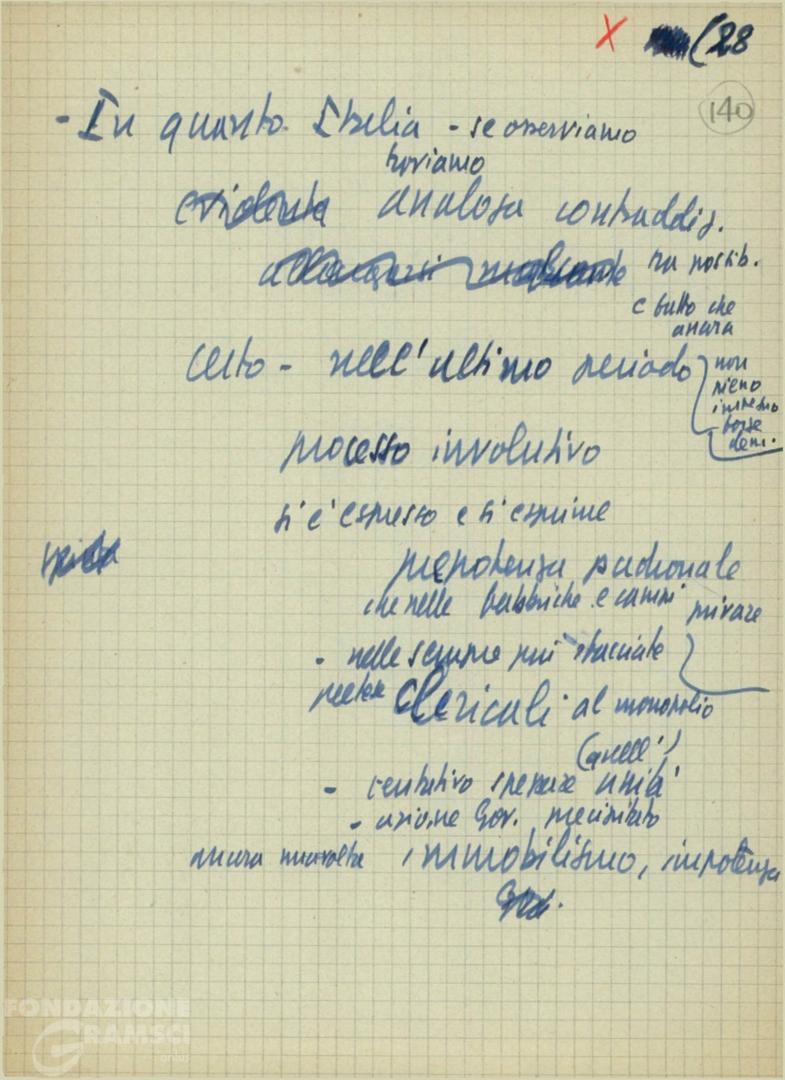 X (28
140
- In quanto Italia - se osserviamo
troviamo
evidente analoga contraddiz.
tra possib.
e tutto che
ancora
Certo - nell'ultimo periodo
non
pieno
ingresso
forze
dem.
processo involutivo
si è espresso e si esprime
prepotenza padronale
che nelle fabbriche e campi mirare
- nelle sempre più sfacciate
pretese clericali al monopolio
(avell')
- tentativo spezzare unità
- azione Gov. precipitato
ancora una volta immobilismo, impotenza
Gov.
FONDAZIONE
GRAMSCI
onlus